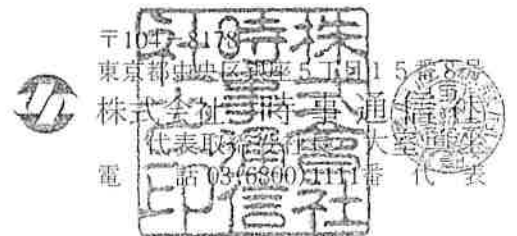 〒104-8178
東京都中央区銀座5丁目15番8号
株式会社 時事通信社
代表取締役社長 大室
電 話 03(6800)1111番 代 表
株式會社
時事通信
印